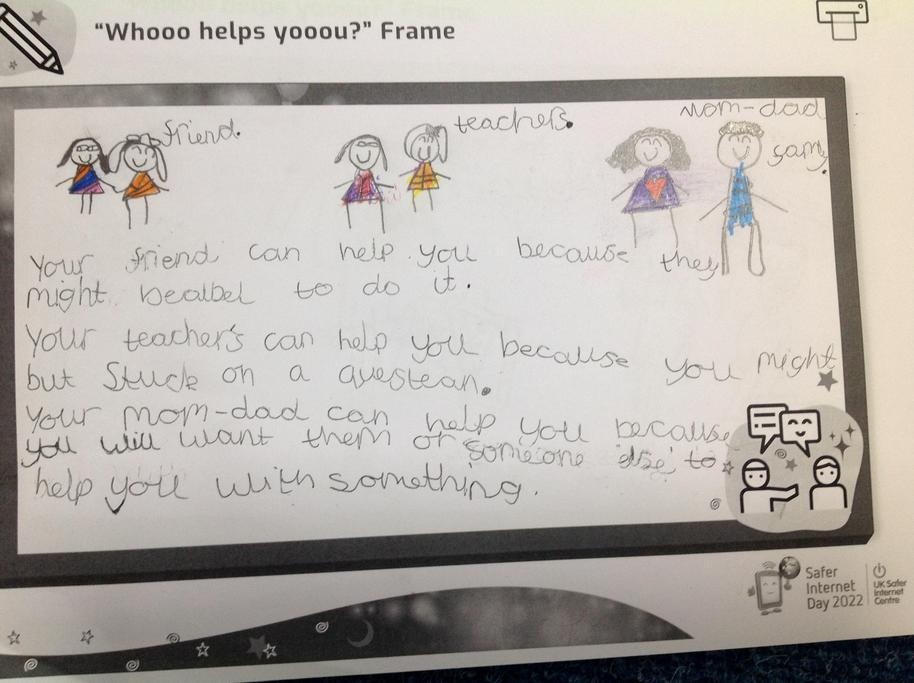 “Whooo helps yooou?” Frame
friend.
teachers.
Mom-dad
Your friend can help you because they
might bealbel to do it.
Your teacher's can help you because you might
but Stuck on a questean.
Your mom-dad can help you because
you will want them or someone else to
help you with something.
Safer
Internet
Day 2022
UK Safer
Internet
Centre